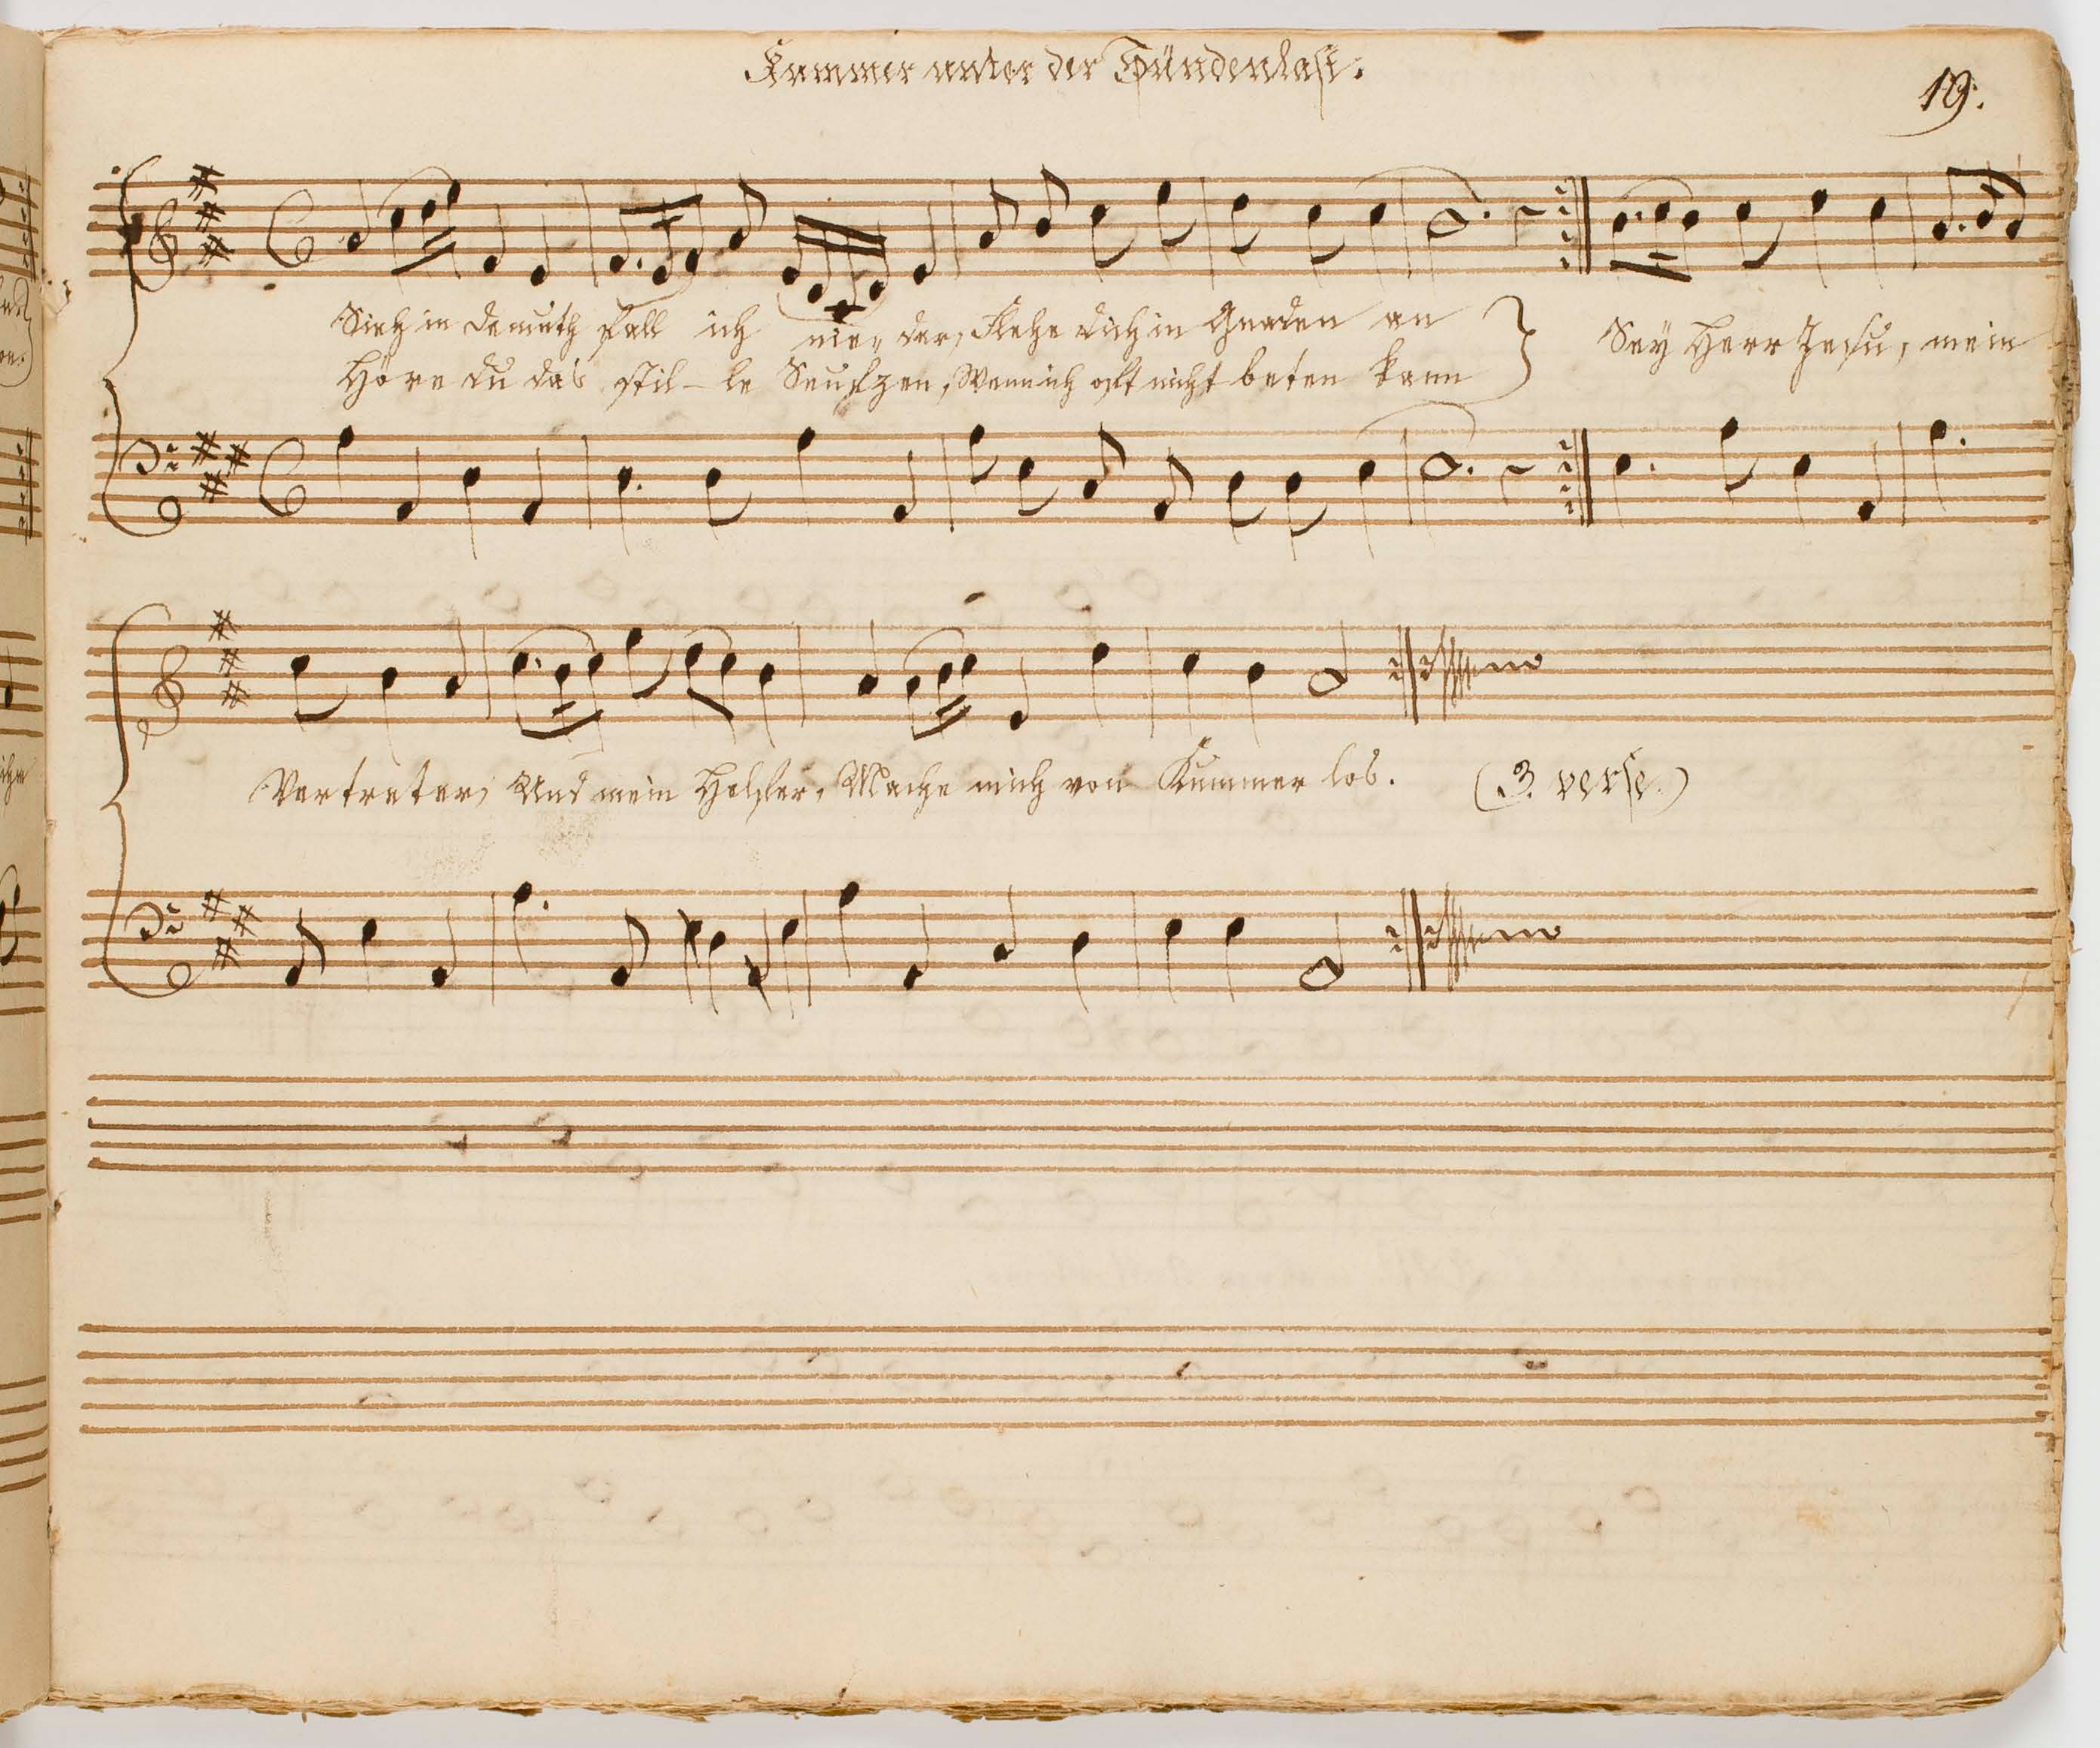 Kummer unter der Sündenlast.
19.
Sieh in demuth fall ich nie„ der, Flehe dich in Gnaden an
Höre du das stil- le Seufzen, Wenn ich oft nicht beten kann
Sey Herr Jesu, mein
Vertreter, Und mein Helfer, Mache mich von Kummer los. (3. verse.)